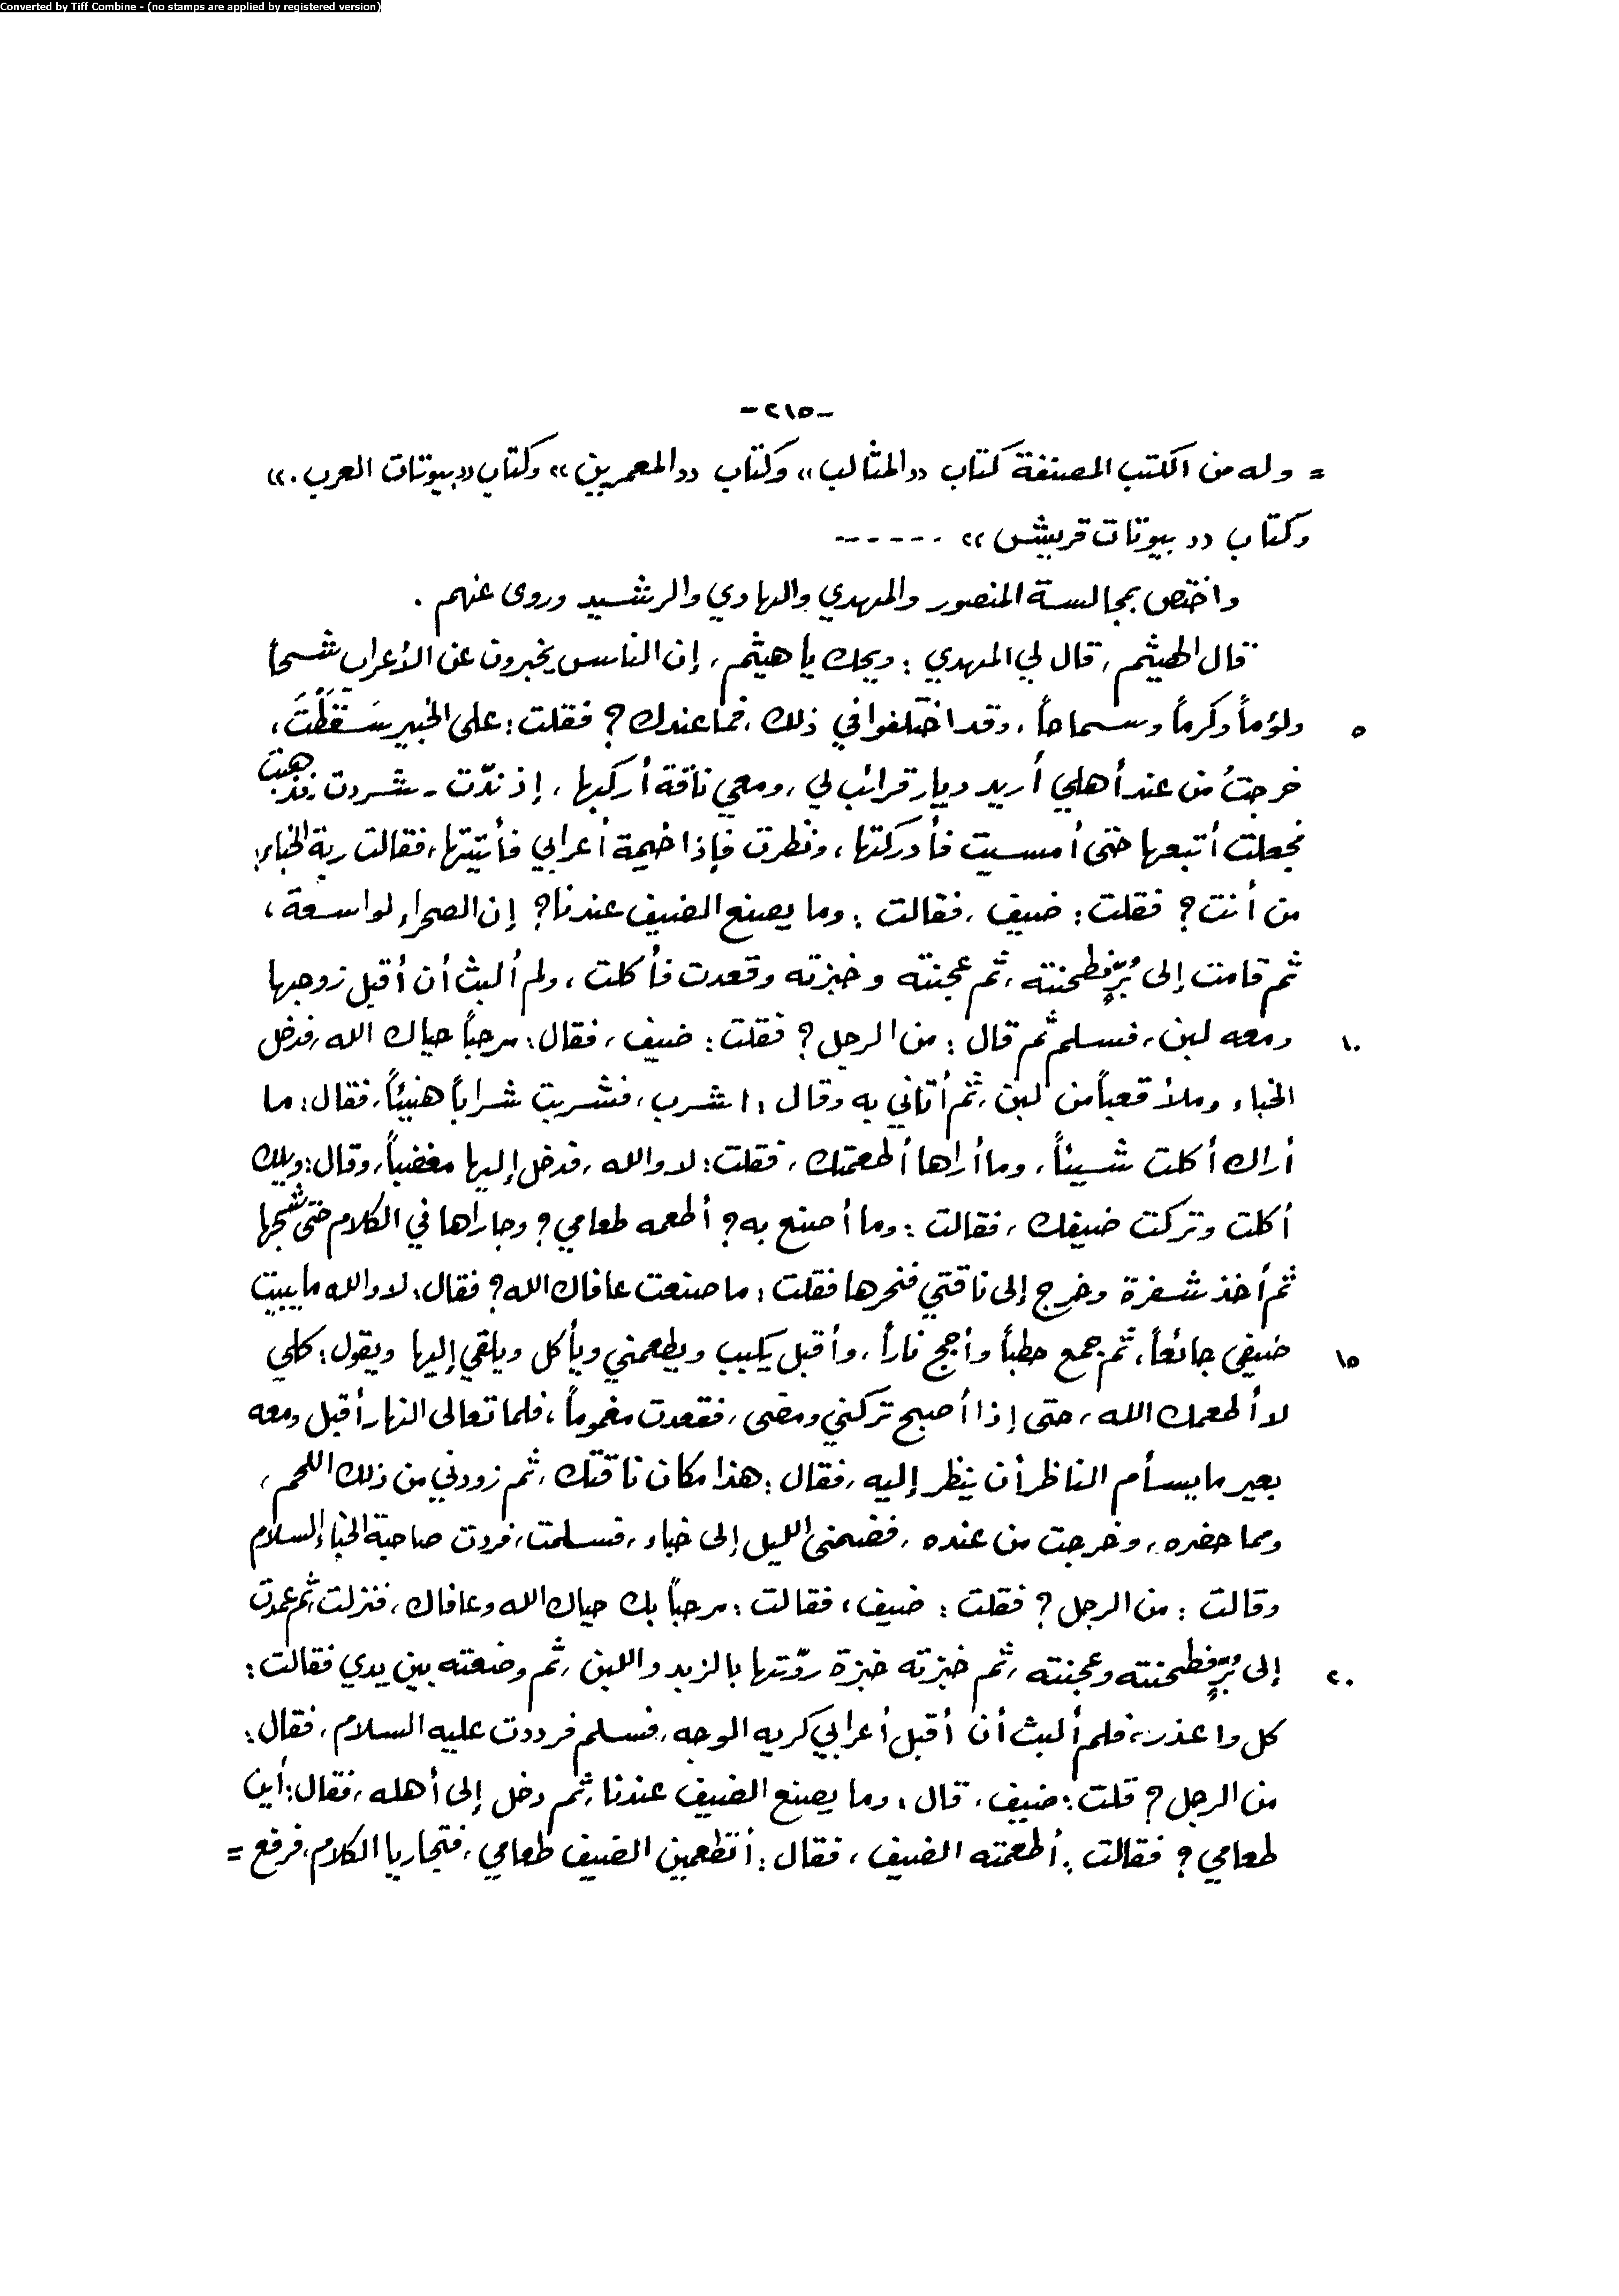 Converted by Tiff Combine - (no stamps are applied by registered version)
-٢١٥-
= وله من الكتب المصنفة كتاب «المثالب» وكتاب «المعمرين» وكتاب «بيوتات العرب.»
وكتاب «بيوتات قريش» .-----
واختص بمجالسة المنصور والمهدي والهادي والرشيد وروى عنهم .
قال الهيثم، قال لي المهدي : ويحك يا هيثم، إن الناس يخبرون عن الأعراب شحاً
٥ ولؤماً وكرماً وسماحاً، وقد اختلفوا في ذلك، فما عندك ؟ فقلت : على الخبير سَقَطْتَ،
خرجتُ من عند أهلي أريد ديار قرائب لي، ومعي ناقة أركبها، إذ ندّت - شردت، نذهبت
فجعلت أتبعها حتى أمسيت فأدركتها، ونظرت فإذا خيمة أعرابي فأتيتها، فقالت ربة الخباء:
من أنت ؟ فقلت : ضيف، فقالت : وما يصنع الضيف عندنا؟ إن الصحراء لواسعة،
ثم قامت إلى بُرٍّ فطحنته، ثم عجنته وخبزته وقعدت فأكلت، ولم ألبث أن أقبل زوجها
١٠ ومعه لبن، فسلم ثم قال : من الرجل ؟ فقلت : ضيف، فقال : مرحباً حياك الله، فدخل
الخباء وملأ قعباً من لبن، ثم أتاني به وقال : اشرب، فشربت شراباً هنيئاً، فقال : ما
أراك أكلت شيئاً، وما أراها أطعمتك، فقلت : لا والله، فدخل إليها مغضباً، وقال : ويلك
أكلت وتركت ضيفك، فقالت : وما أصنع به؟ أطعمه طعامي؟ وجاراها في الكلام حتى شجها
ثم أخذ شفرة وخرج إلى ناقتي فنحرها فقلت : ما صنعت عافاك الله؟ فقال : لا والله ما يبيت
١٥ ضيفي جائعاً، ثم جمع حطباً وأجج ناراً، وأقبل يكبب ويطعمني ويأكل ويلقي إليها ويقول : كلي
لا أطعمك الله، حتى إذا أصبح تركني ومضى، فقعدت مغموماً، فلما تعالى النهار أقبل ومعه
بعير ما يسأم الناظر أن ينظر إليه، فقال : هذا مكان ناقتك، ثم زودني من ذلك اللحم،
ومما حضره، وخرجت من عنده، فضمني الليل إلى خباء، فسلمت، فردت صاحبة الخباء السلام
وقالت : من الرجل ؟ فقلت : ضيف، فقالت : مرحباً بك حياك الله وعافاك، فنزلت، ثم عمدت
٢٠ إلى بُرٍّ فطحنته وعجنته، ثم خبزته خبزة روّتها بالزبد واللبن، ثم وضعته بين يدي فقالت :
كل واعذر، فلم ألبث أن أقبل أعرابي كريه الوجه، فسلم فرددت عليه السلام، فقال :
من الرجل ؟ قلت : ضيف، قال : وما يصنع الضيف عندنا، ثم دخل إلى أهله، فقال : أين
طعامي ؟ فقالت : أطعمته الضيف، فقال : أتطعمين الضيف طعامي، فتجاريا الكلام، فرفع =